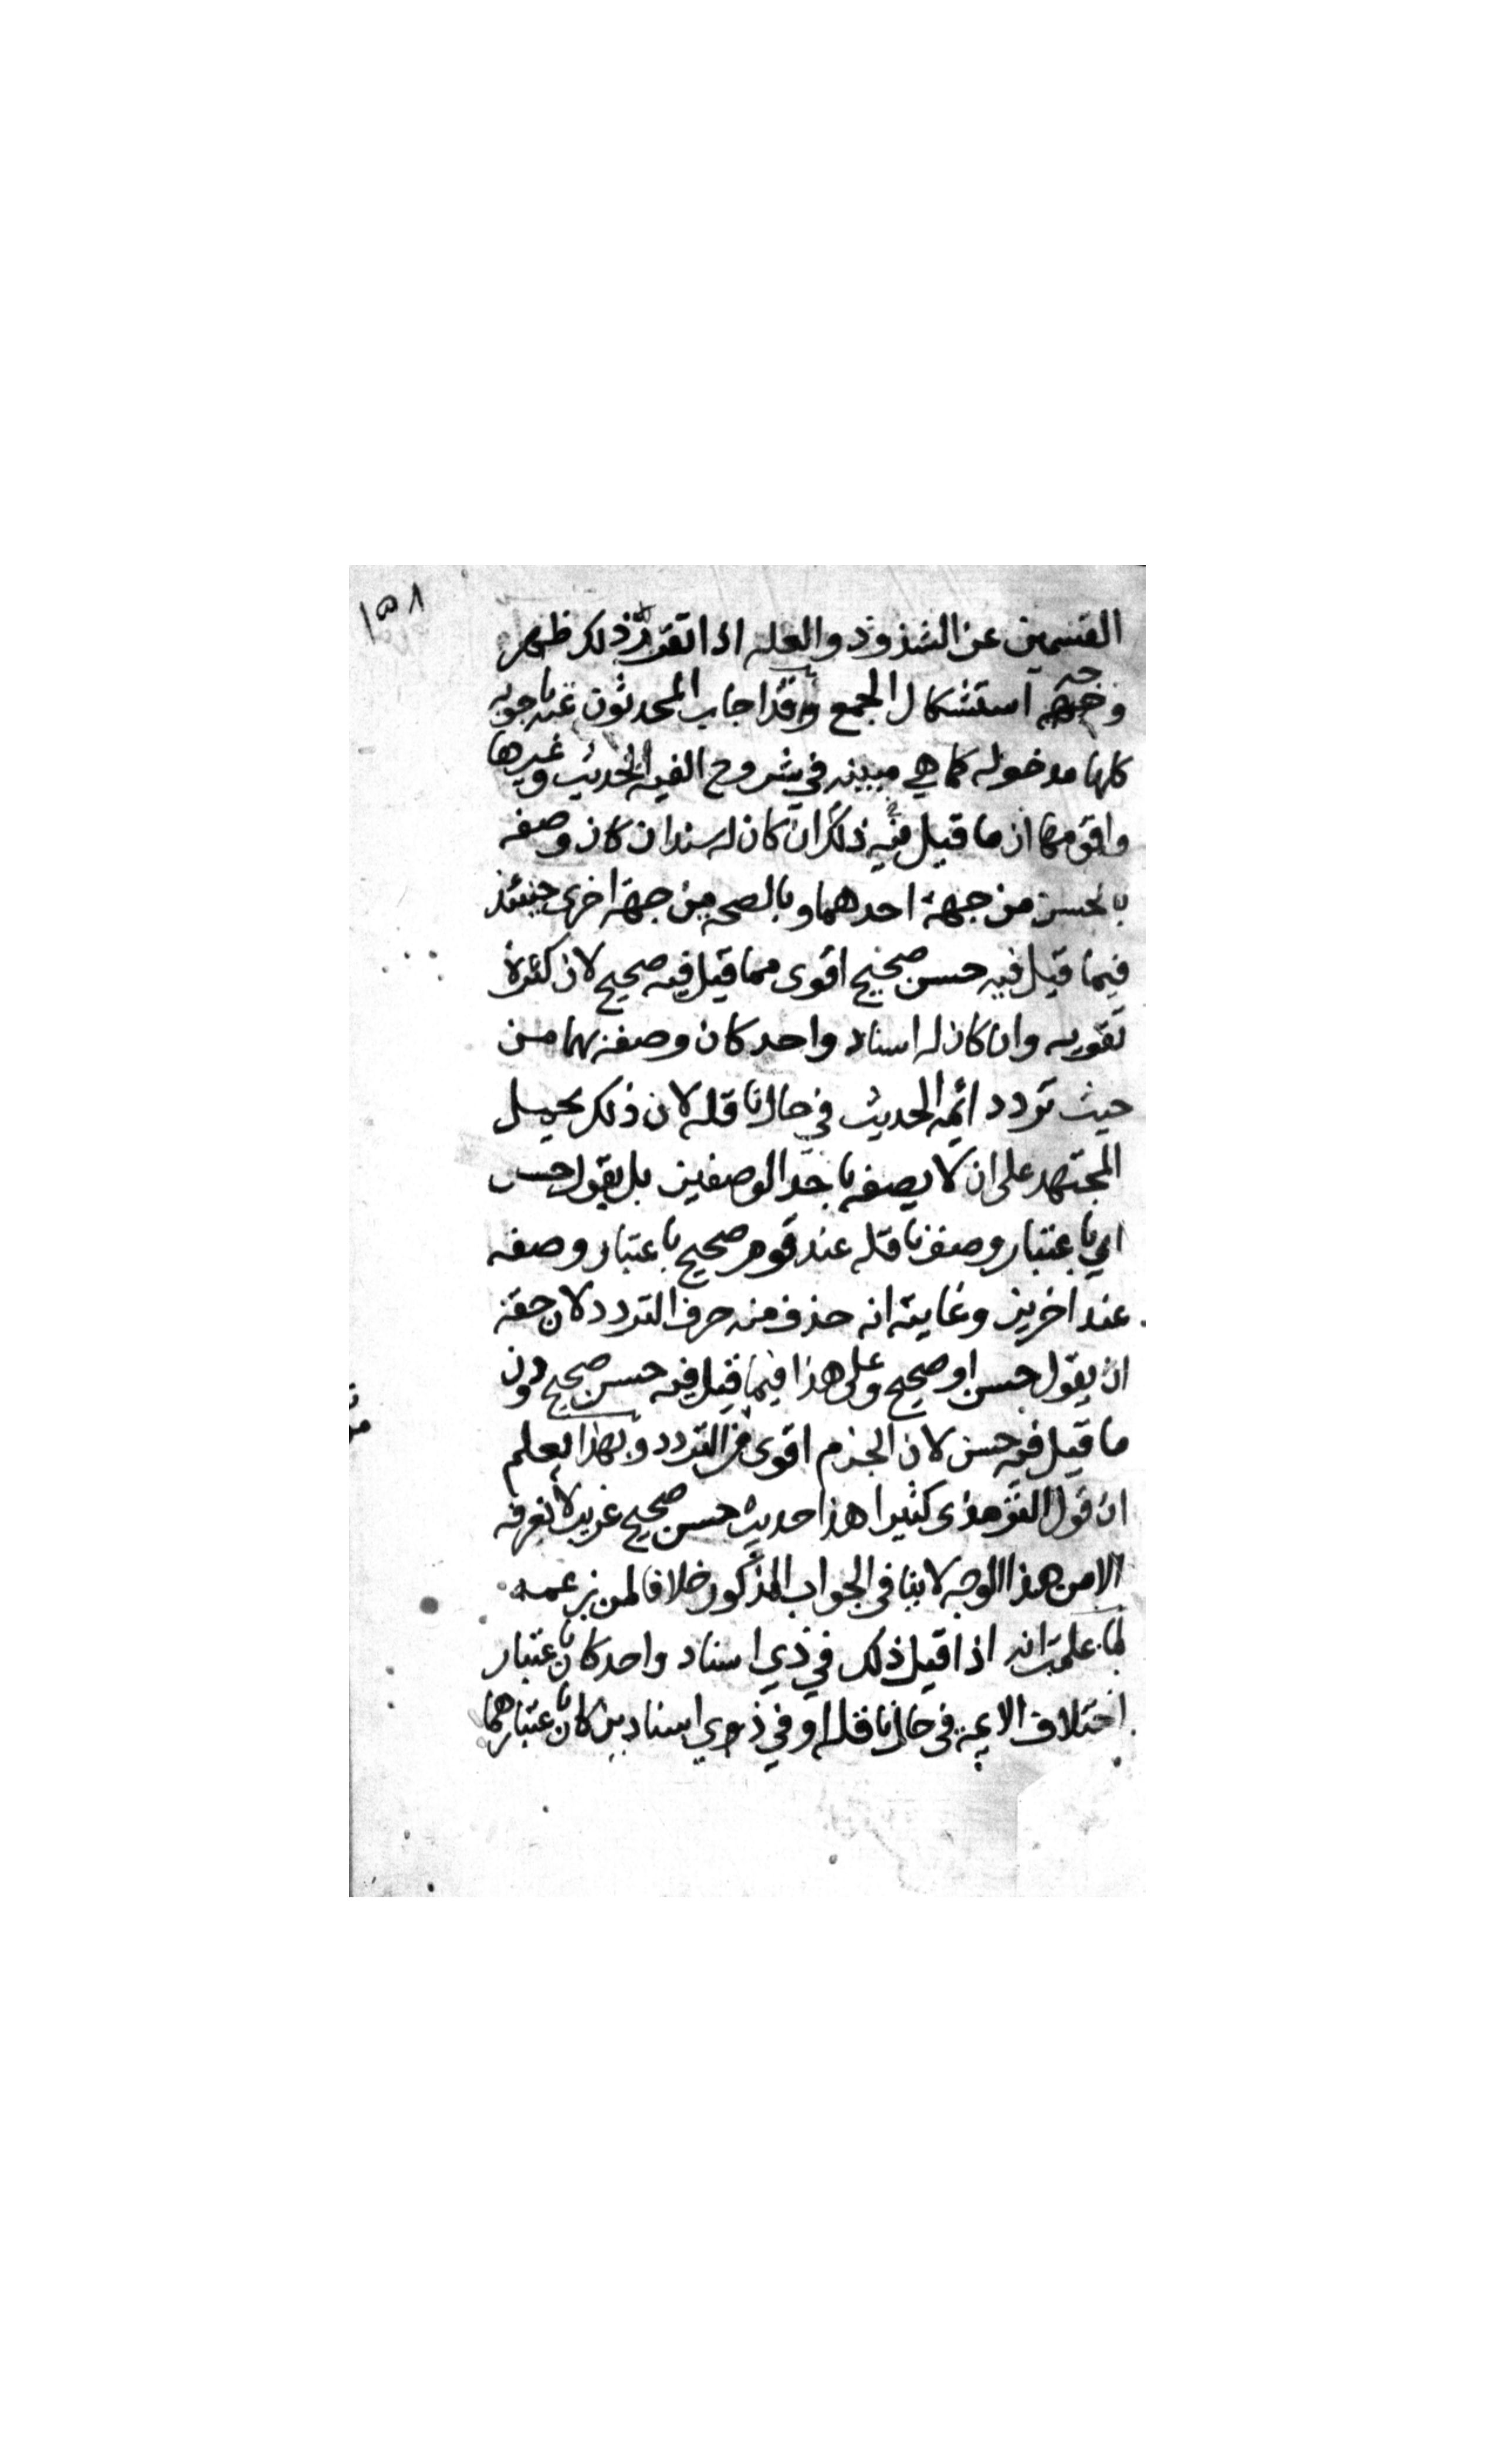 ١٥٨
القسمين عن الشذوذ والعله اذا تقرر ذلك ظهر
وجه استشكال الجمع وقد اجاب المحدثون عنه باجوبه
كلها مدخوله كما هي مبينه في شروح الفيه الحديث وغيرها
واقومها ان ما قيل فيه ذلك ان كان له سندان كان وصفه
بالحسن من جهة احدهما وبالصحه من جهة اخرى حينئذ
فيما قيل فيه حسن صحيح اقوى مما قيل فيه صحيح لان كثرة
تقويه وان كان له اسناد واحد كان وصفه بهما من
حيث تردد ائمه الحديث في حال ناقله لان ذلك يحمل
المجتهد على ان لا يصفه باحد الوصفين بل يقول حسن
اي باعتبار وصف ناقله عند قوم صحيح باعتبار وصفه
عند اخرين وغايته انه حذف منه حرف التردد لان حقه
ان يقول حسن او صحيح وعلى هذا فيما قيل فيه حسن صحيح دون
ما قيل فيه حسن لان الجزم اقوى من التردد وبهذا يعلم
ان قول الترمذى كثيرا هذا حديث حسن صحيح غريب لا نعرفه
الا من هذا الوجه لا ينافى الجواب المذكور خلافا لمن زعمه
لما علمت انه اذا قيل ذلك في ذي اسناد واحد كان باعتبار
اختلاف الايمة في حال ناقله او في ذوي اسنادين كان باعتبارهما